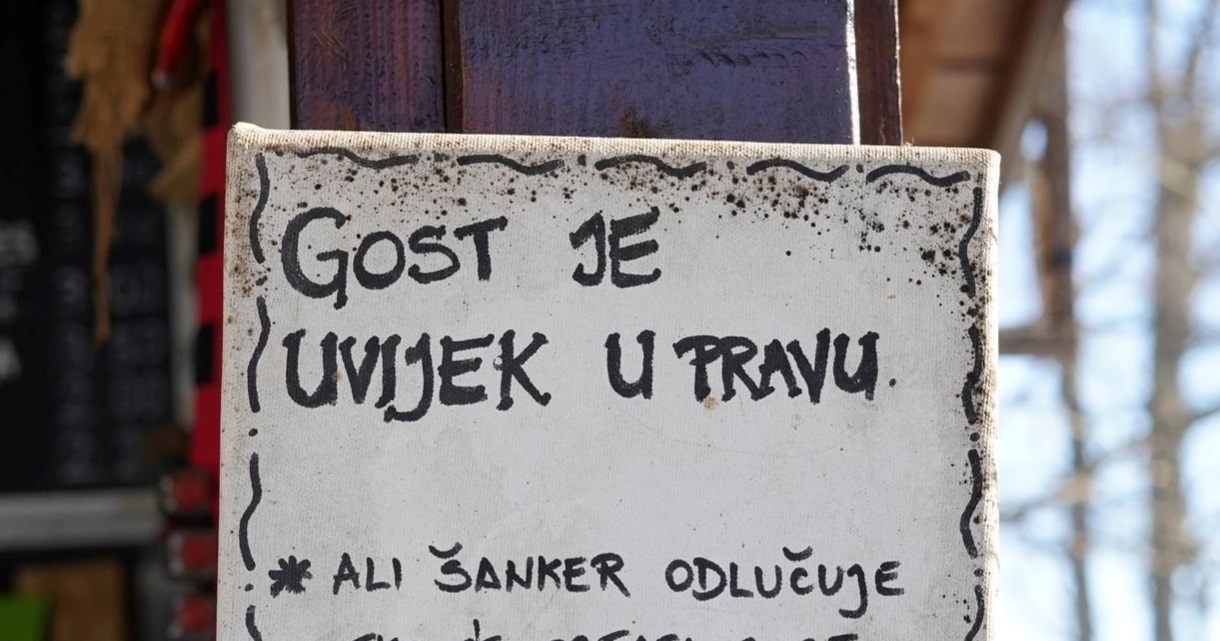 GOST JE
UVIJEK U PRAVU.
* ALI ŠANKER ODLUČUJE